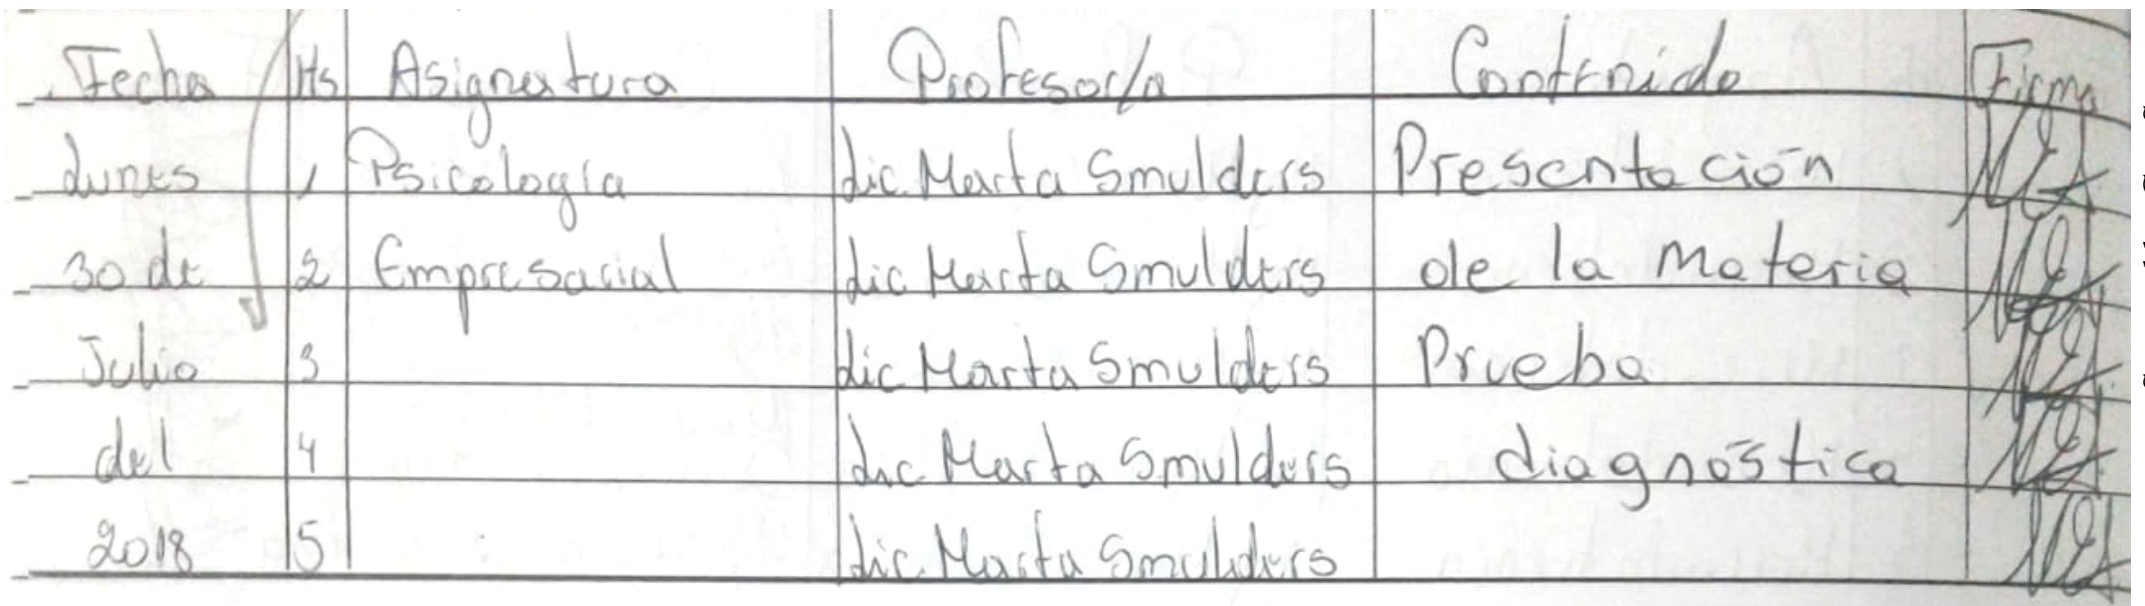 Fecha Hs Asignatura Profesor/a Contenido Firma
Lunes 1 Psicología Lic. Marta Smulders Presentación
30 de 2 Empresarial Lic Marta Smulders de la Materia
Julio 3 Lic Marta Smulders Prueba
del 4 Lic. Marta Smulders diagnóstica
2018 5 Lic. Marta Smulders